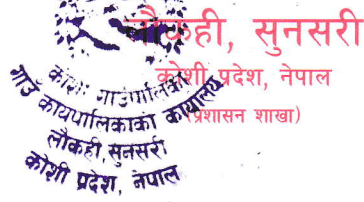 लौकही, सुनसरी
कोशी प्रदेश, नेपाल
(प्रशासन शाखा)
कोशी गाउँपालिका
गाउँ कार्यपालिकाको कार्यालय
लौकही, सुनसरी
कोशी प्रदेश, नेपाल